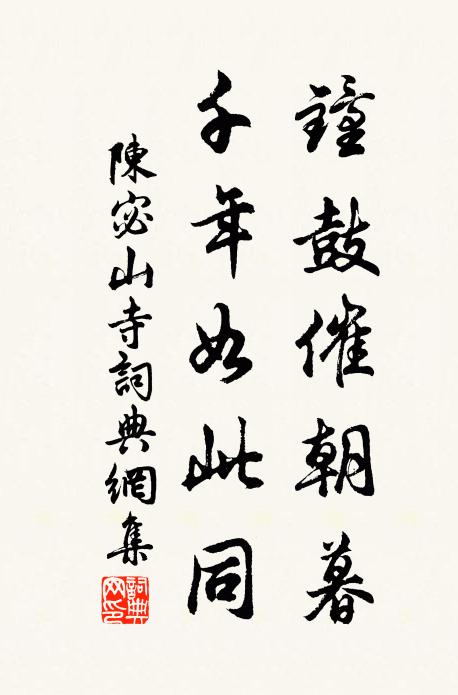 鐘鼓催朝暮
千年如此同
陳宓山寺詞典網集
詞典网印